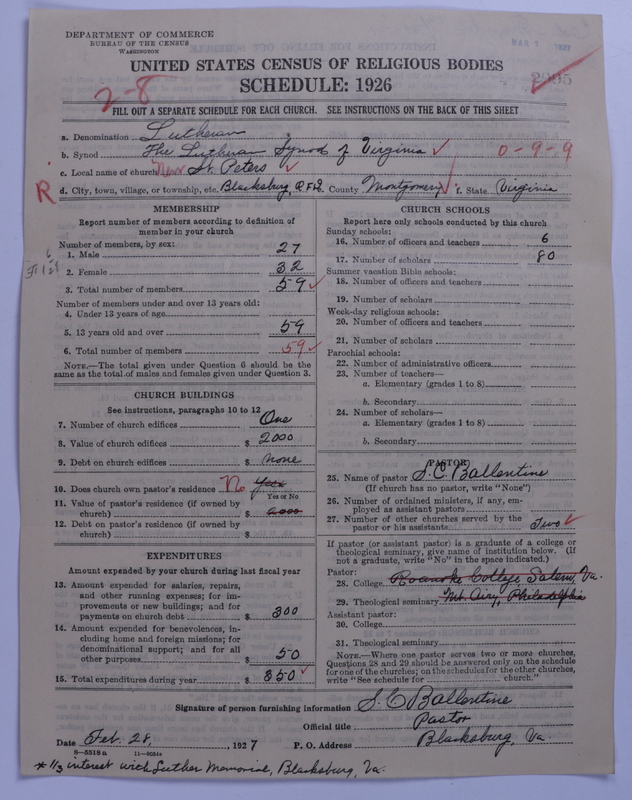 DEPARTMENT OF COMMERCE
BUREAU OF THE CENSUS
WASHINGTON
UNITED STATES CENSUS OF RELIGIOUS BODIES
SCHEDULE: 1926
2-8
FILL OUT A SEPARATE SCHEDULE FOR EACH CHURCH. SEE INSTRUCTIONS ON THE BACK OF THIS SHEET
a. Denomination Lutheran
b. Synod The Lutheran Synod of Virginia 0-9-9
c. Local name of church New St. Peters
R d. City, town, village, or township, etc. Blacksburg, R.F.D. County Montgomery f. State Virginia
MEMBERSHIP
Report number of members according to definition of
member in your church
Number of members, by sex:
1. Male 27
2. Female 32
3. Total number of members 59
Number of members under and over 13 years old:
4. Under 13 years of age
5. 13 years old and over 59
6. Total number of members 59
NOTE.—The total given under Question 6 should be
same as the total of males and females given under Question 3.
CHURCH BUILDINGS
See instructions, paragraphs 10 to 12
7. Number of church edifices One
8. Value of church edifices $ 2000
9. Debt on church edifices $ none
10. Does church own pastor's residence No Yes*
Yes or No
11. Value of pastor's residence (if owned by
church) $
12. Debt on pastor's residence (if owned by
church) $
EXPENDITURES
Amount expended by your church during last fiscal year
13. Amount expended for salaries, repairs,
and other running expenses; for im-
provements or new buildings; and for
payments on church debt $ 300
14. Amount expended for benevolences, in-
cluding home and foreign missions; for
denominational support; and for all
other purposes $ 50
15. Total expenditures during year $ 350
CHURCH SCHOOLS
Report here only schools conducted by this church
Sunday schools:
16. Number of officers and teachers 6
17. Number of scholars 80
Summer vacation Bible schools:
18. Number of officers and teachers
19. Number of scholars
Week-day religious schools:
20. Number of officers and teachers
21. Number of scholars
Parochial schools:
22. Number of administrative officers
23. Number of teachers—
a. Elementary (grades 1 to 8)
b. Secondary
24. Number of scholars—
a. Elementary (grades 1 to 8)
b. Secondary
PASTOR
25. Name of pastor S. C. Ballentine
(If church has no pastor, write "None")
26. Number of ordained ministers, if any, em-
ployed as assistant pastors
27. Number of other churches served by the
pastor or his assistants Two
If pastor (or assistant pastor) is a graduate of a college or
theological seminary, give name of institution below. (If
not a graduate, write "No" in the space indicated.)
Pastor:
28. College Roanoke College, Salem, Va.
29. Theological seminary Mt. Airy, Philadelphia
Assistant pastor:
30. College
31. Theological seminary
NOTE.—Where one pastor serves two or more churches,
Questions 28 and 29 should be answered only on the schedule
for one of the churches; on the schedules for the other churches,
write "See schedule for church."
Signature of person furnishing information S. C Ballentine
Official title Pastor
Date Feb. 28, 1927 P. O. Address Blacksburg, Va.
8—5518 a
* 1/3 interest with Luther Memorial, Blacksburg, Va.